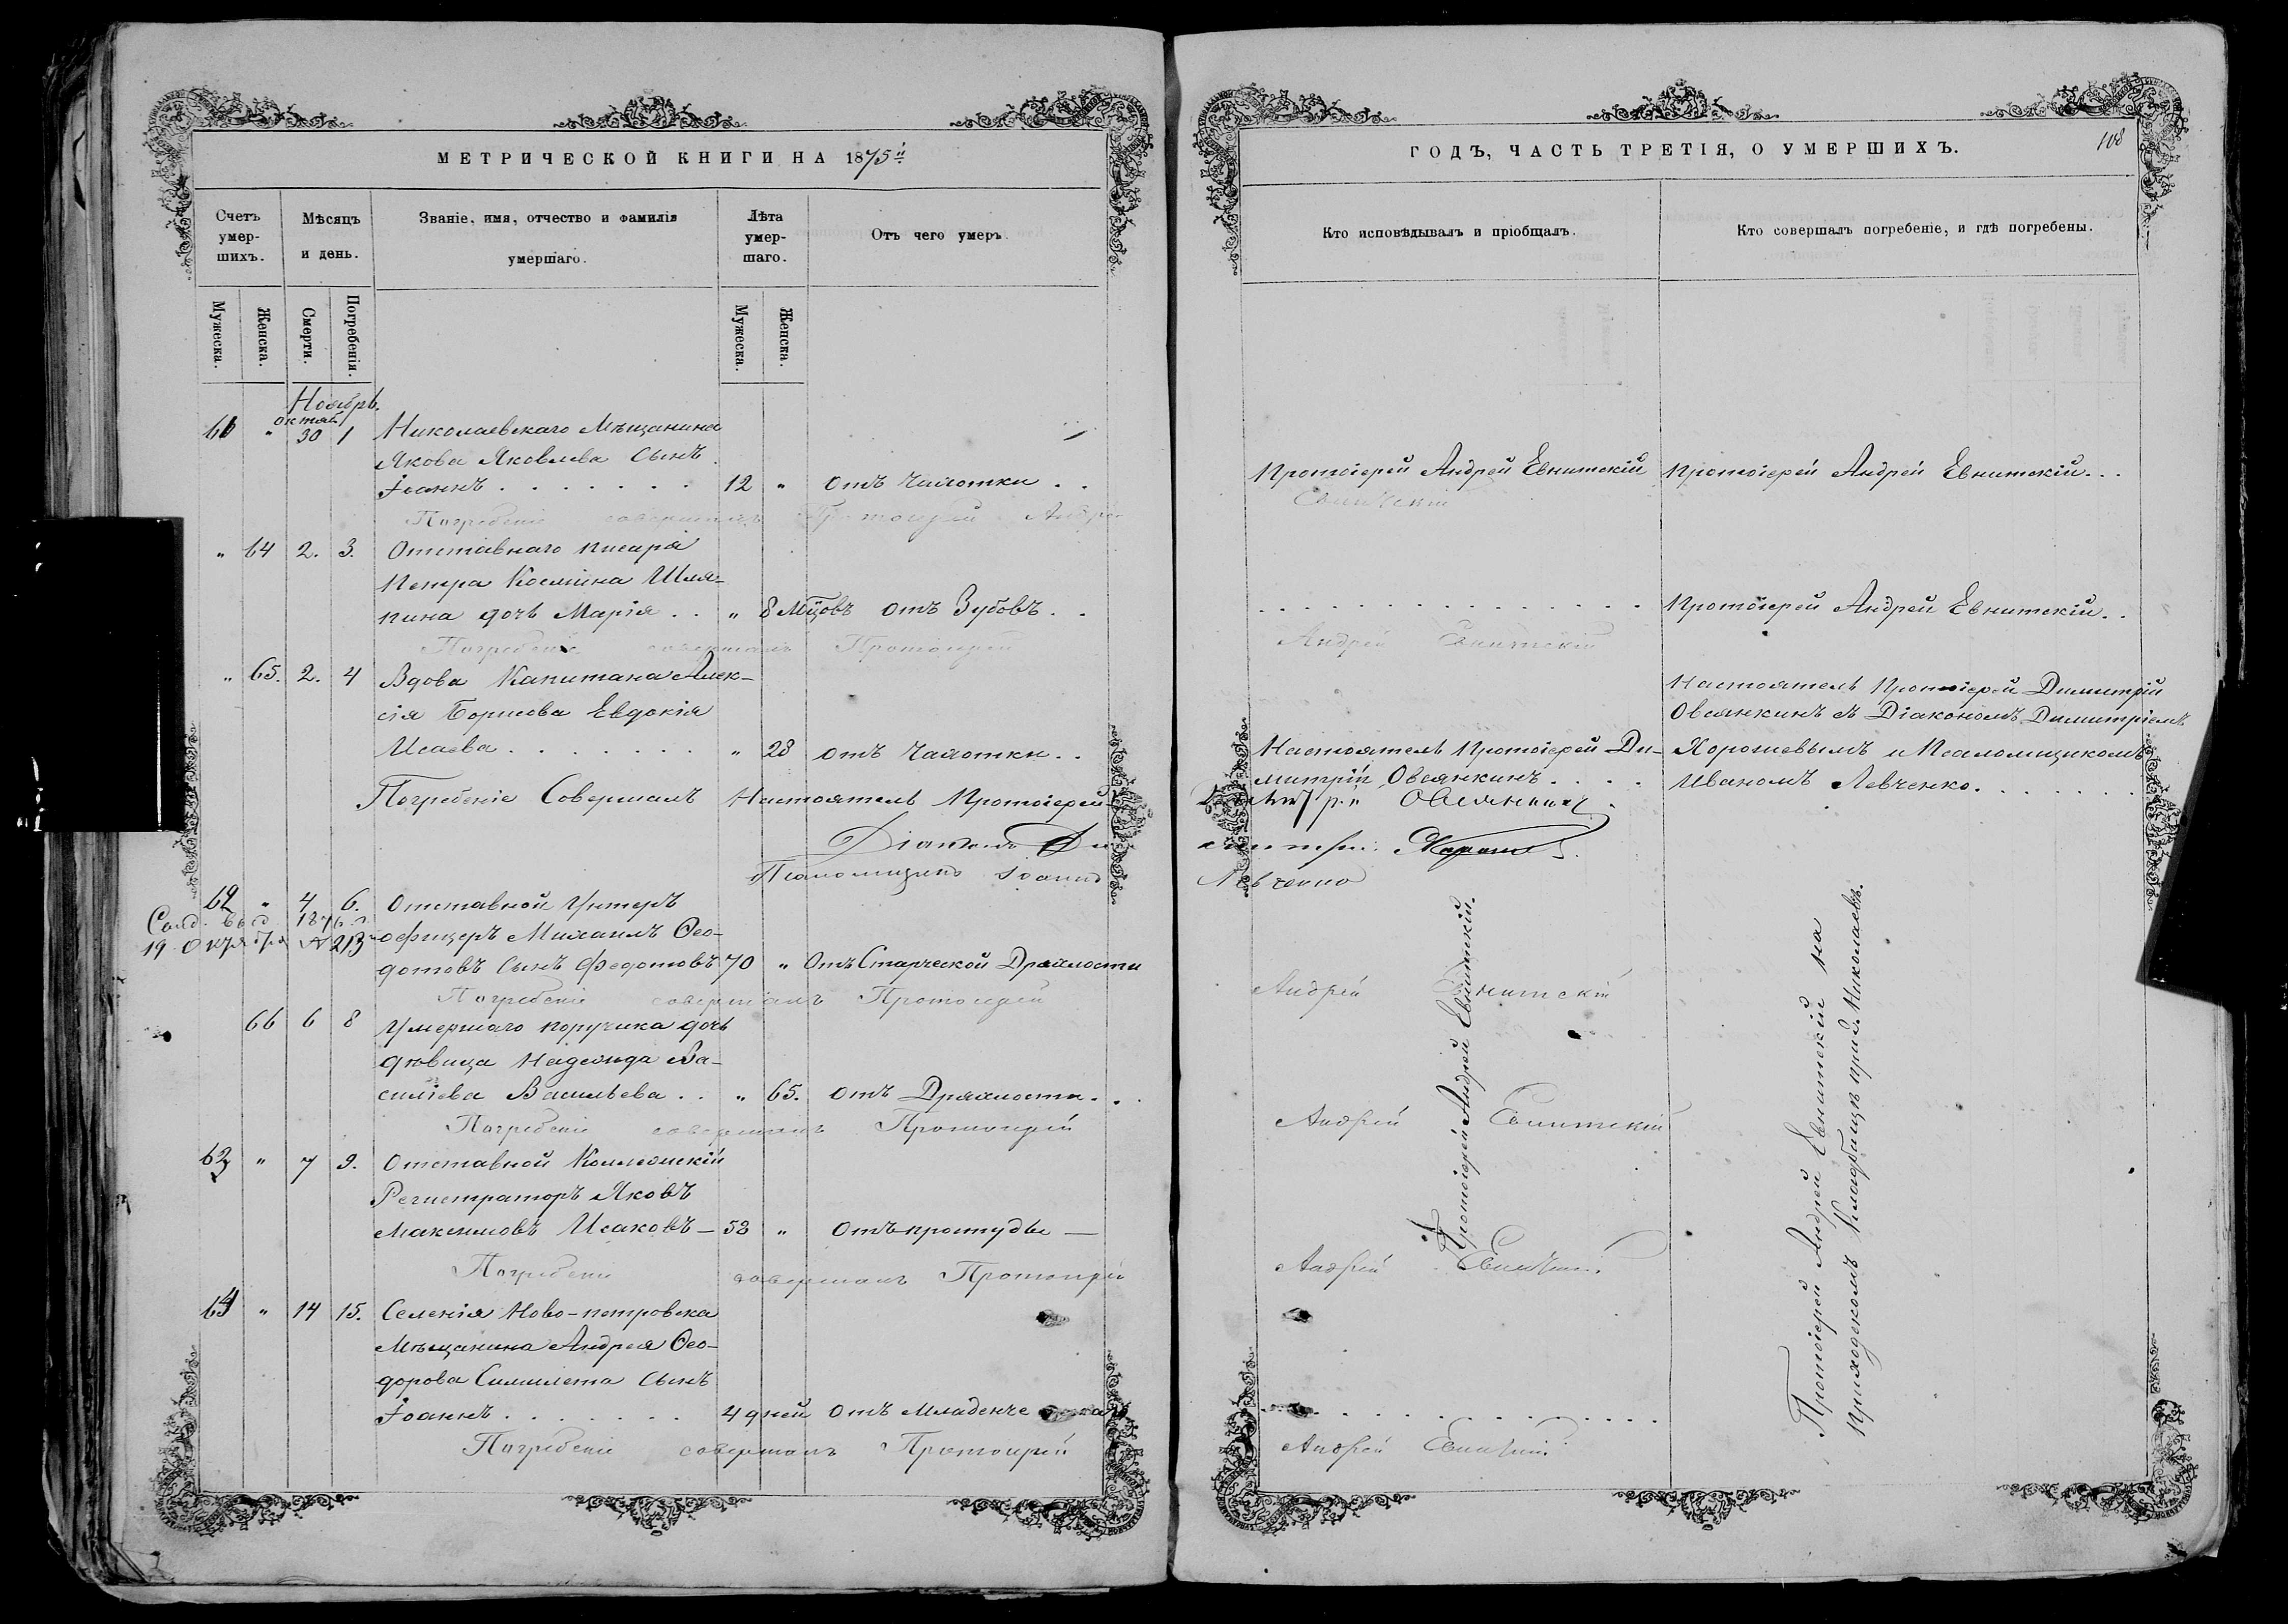 МЕТРИЧЕСКОЙ КНИГИ НА 1875й
Счетъ умер-шихъ.
Мѣсяцъ и день.
Званіе, имя, отчество и фамилія умершаго.
Лѣта умер-шаго.
Отъ чего умеръ.
Мужеска.
Женска.
Смерти.
Погребенія.
Мужеска.
Женска.
Ноябрь.
октяб.
61 " 30 1 Николаевскаго Мѣщанина
Якова Яковлева сынъ
Іоаннъ . . . . . . . 12 " отъ чахотки . .
Погребеніе совершалъ Протоіерей Андрей
" 64 2. 3. Отставнаго писаря
Петра Космина Шля-
пина дочь Марія . . " 8 Мцовъ отъ Зубовъ . .
Погребеніе совершалъ Протоіерей
" 65. 2. 4 Вдова Капитана Алек-
сія Борисова Евдокія
Исаева . . . . . . . " 28 отъ чахотки . .
Погребеніе Совершалъ Настоятель Протоіерей
Діаконъ Ди
Псаломщикъ Іоаннъ
62 " 4 6. Отставной Унтеръ
1876 г.
19 Октября № 213
офицеръ Михаилъ Ѳео-
дотовъ сынъ Федотовъ 70 " Отъ Старческой Дряхлости
Погребеніе совершалъ Протоіерей
66 6 8 Умершаго поручика дочь
дѣвица Надежда Ва-
силіева Васильева . . " 65. отъ Дряхлости . . .
Погребеніе совершалъ Протоіерей
63 " 7 9. Отставной Коллежскій
Регистраторъ Яковъ
Максимовъ Исаковъ — 53 " Отъ простуды —
Погребеніе совершалъ Протоіерей
64 " 14 15. Селенія Ново-петровска
Мѣщанина Андрея Ѳео-
дорова сынъ
Іоаннъ . . . . . . . 4 дней отъ
Погребеніе совершалъ Протоіерей
ГОДЪ, ЧАСТЬ ТРЕТІЯ, О УМЕРШИХЪ.
108
Кто исповѣдывалъ и пріобщалъ.
Кто совершалъ погребеніе, и гдѣ погребены.
Протоіерей Андрей Евнитскій
Протоіерей Андрей Евнитскій. . .
Евнитскій
. . . . . . . . . . . . . . . .
Протоіерей Андрей Евнитскій. .
Андрей Евнитскій
Настоятель Протоіерей Димитрій
Овсянкинъ съ Діакономъ Димитріемъ
Настоятель Протоіерей Ди-
Хорошевымъ и Псаломщикомъ
митрій Овсянкинъ . . . .
Иваномъ Левченко. . . . . . .
Димитрій Овсянкинъ
митрій
Левченко
Протоіерей Андрей Евнитскій.
Протоіерей Андрей Евнитскій на
приходскомъ кладбищѣ при г. Николаевѣ.
Андрей Евнитскій
Андрей Евнитскій
Андрей Евнитскій
. . . . . . . . . . . . . . .
Андрей Евнитскій